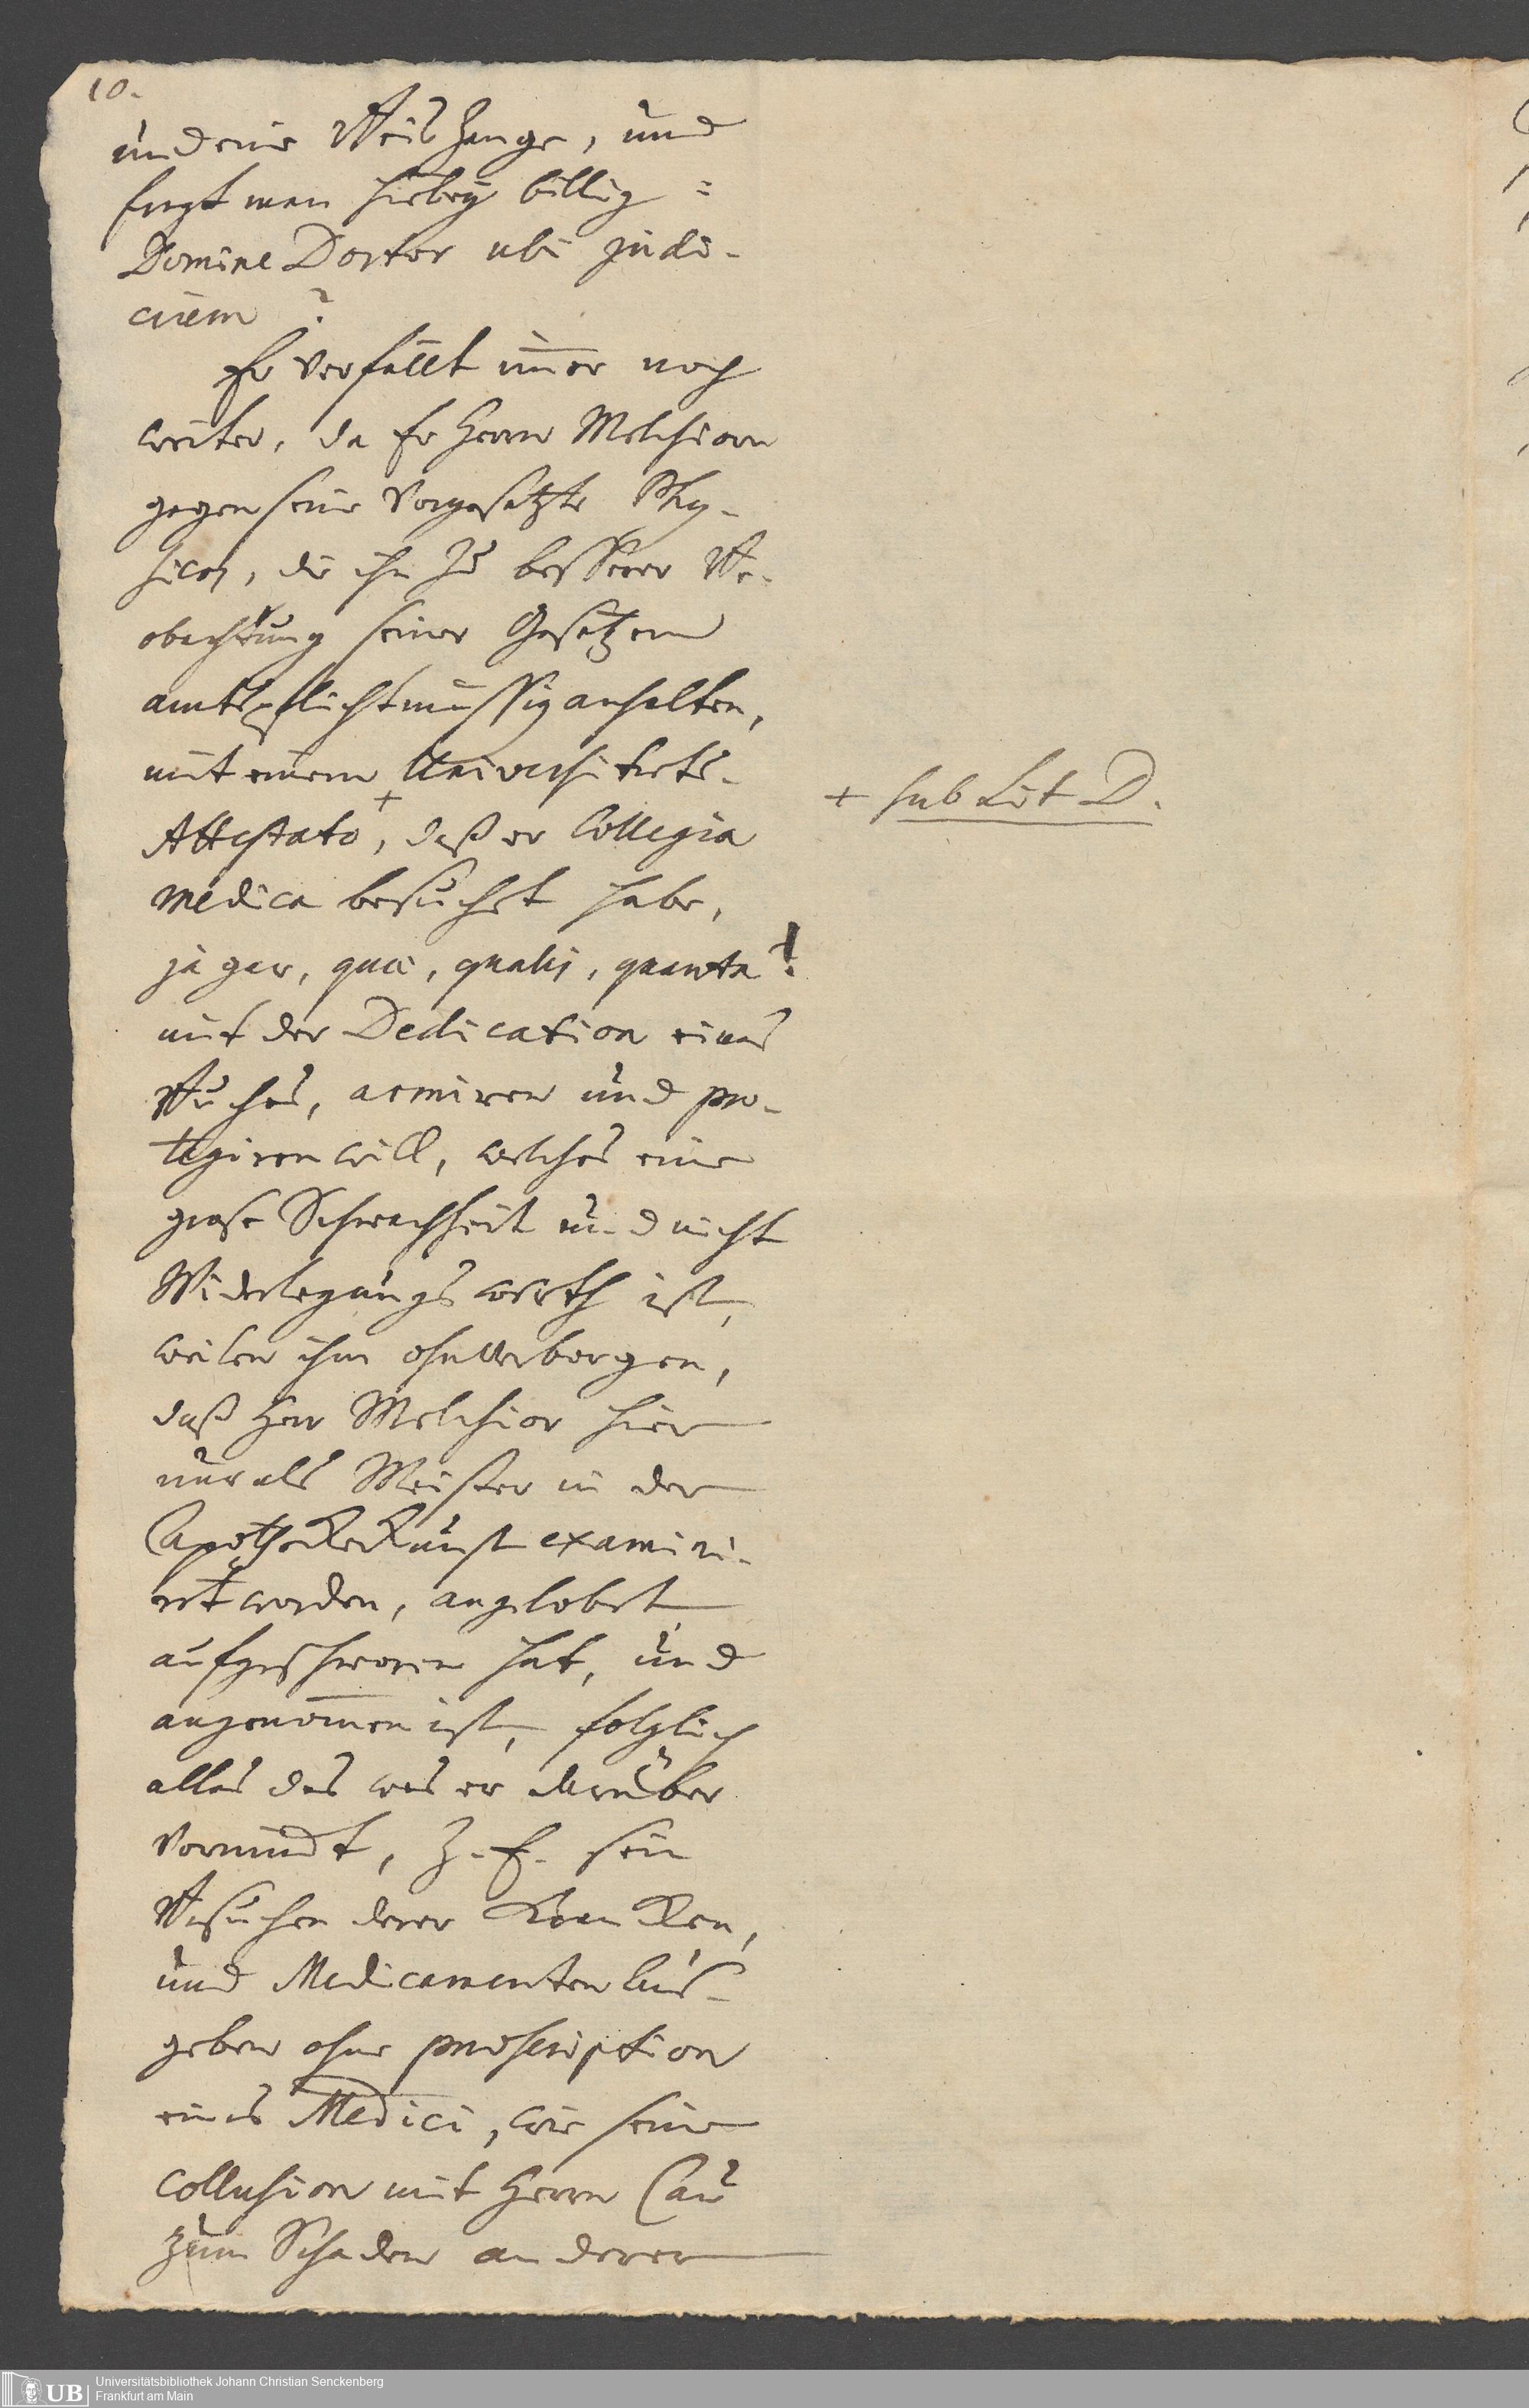 10.
und eine Beis Zange, und
fragt man hiebey billig:
Domine Doctor ubi judi-
cium?
Er verfällt immer noch
weiter, da Er Herrn Melchiorn
gegen seine Vorgesetzte Phy-
sicos, die ihn zu besserer Be-
obachtung seiner Gesetzen
amtspflichtmässig anhalten,
mit einem Universitaets-
+
Attestato, daß er Collegia
medica besuchet habe,
ja gar, quae, qualis, quanta!
mit der Dedication eines
Buches, armiren und pro-
tegiren will, welches eine
grose Schwachheit und nicht
Widerlegungs werth ist,
weilen ihm ohnverborgen,
daß Herr Melchior hier
nur als Meister in der
Apotheckerkunst examini-
ret worden, angelobet
aufgeschworen hat, und
angenommen ist, folglich
alles das was er darüber
vornimdt, Z. E. sein
Besuchen derer Krancken,
und Medicamenten Aus-
geben ohne praescription
eines Medici, wie seine
collusion mit Herrn Cau
zum Schaden anderer
+ sub Lit D.